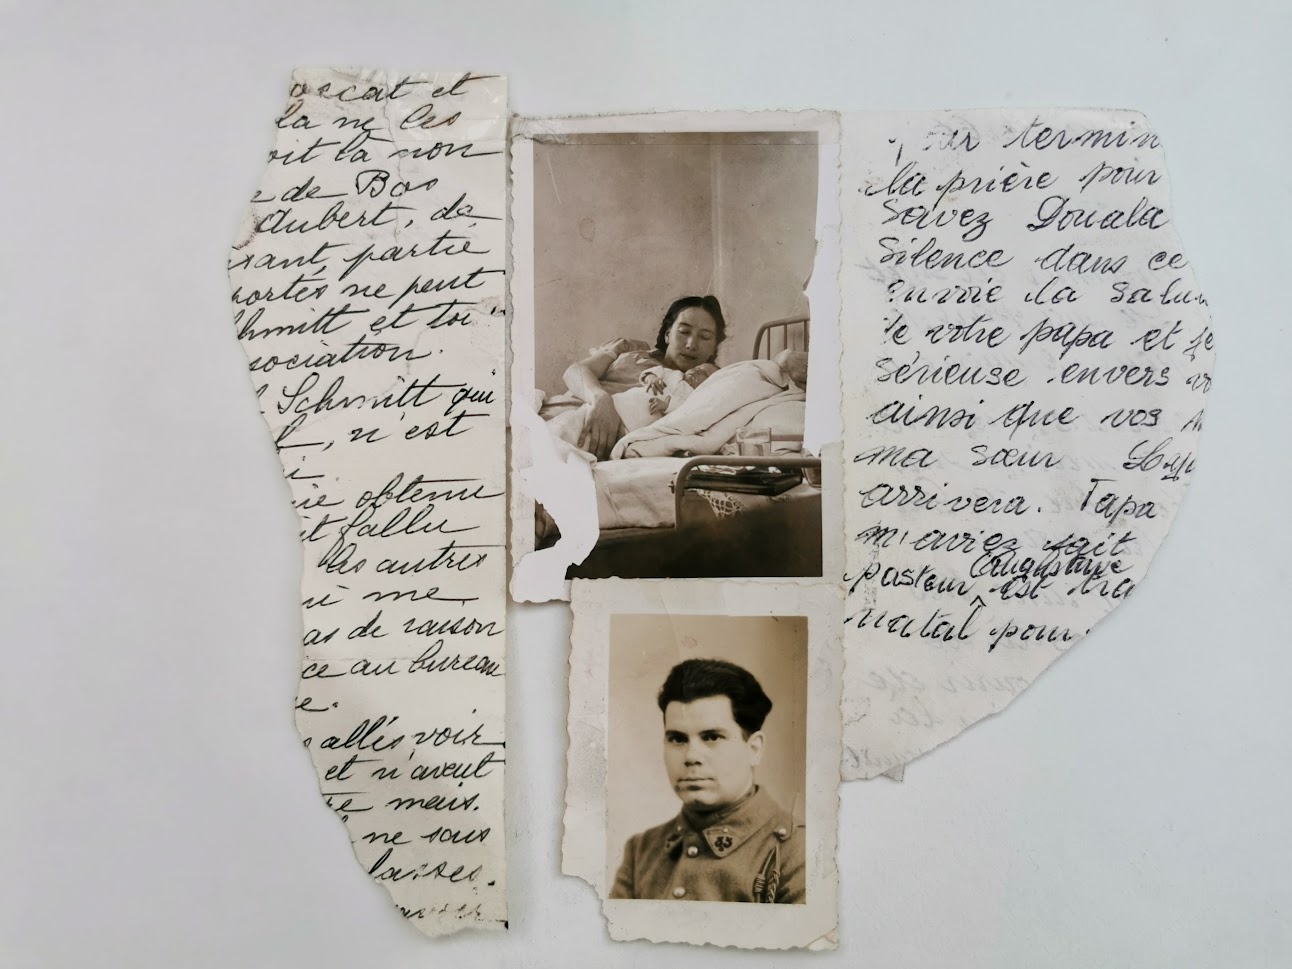 et
la ne les
oit la non
e de Bos
Aubert, de
sant partie
portés ne peut
chmitt et toi
sociation.
Schmitt qui
t, n'est
obtenu
it fallu
les autres
ni me
as de raison
ce au bureau
e.
s allés voir
et n'avait
te mais.
ne sous
lasses.
termin
la prière pour
Savez Douala
Silence dans ce
envoie la Salu
de votre papa et je
sérieuse envers vo
ainsi que vos
ma sœur
arrivera. Papa
m'aviez fait
Augustine
pasteur est
natal pour
43